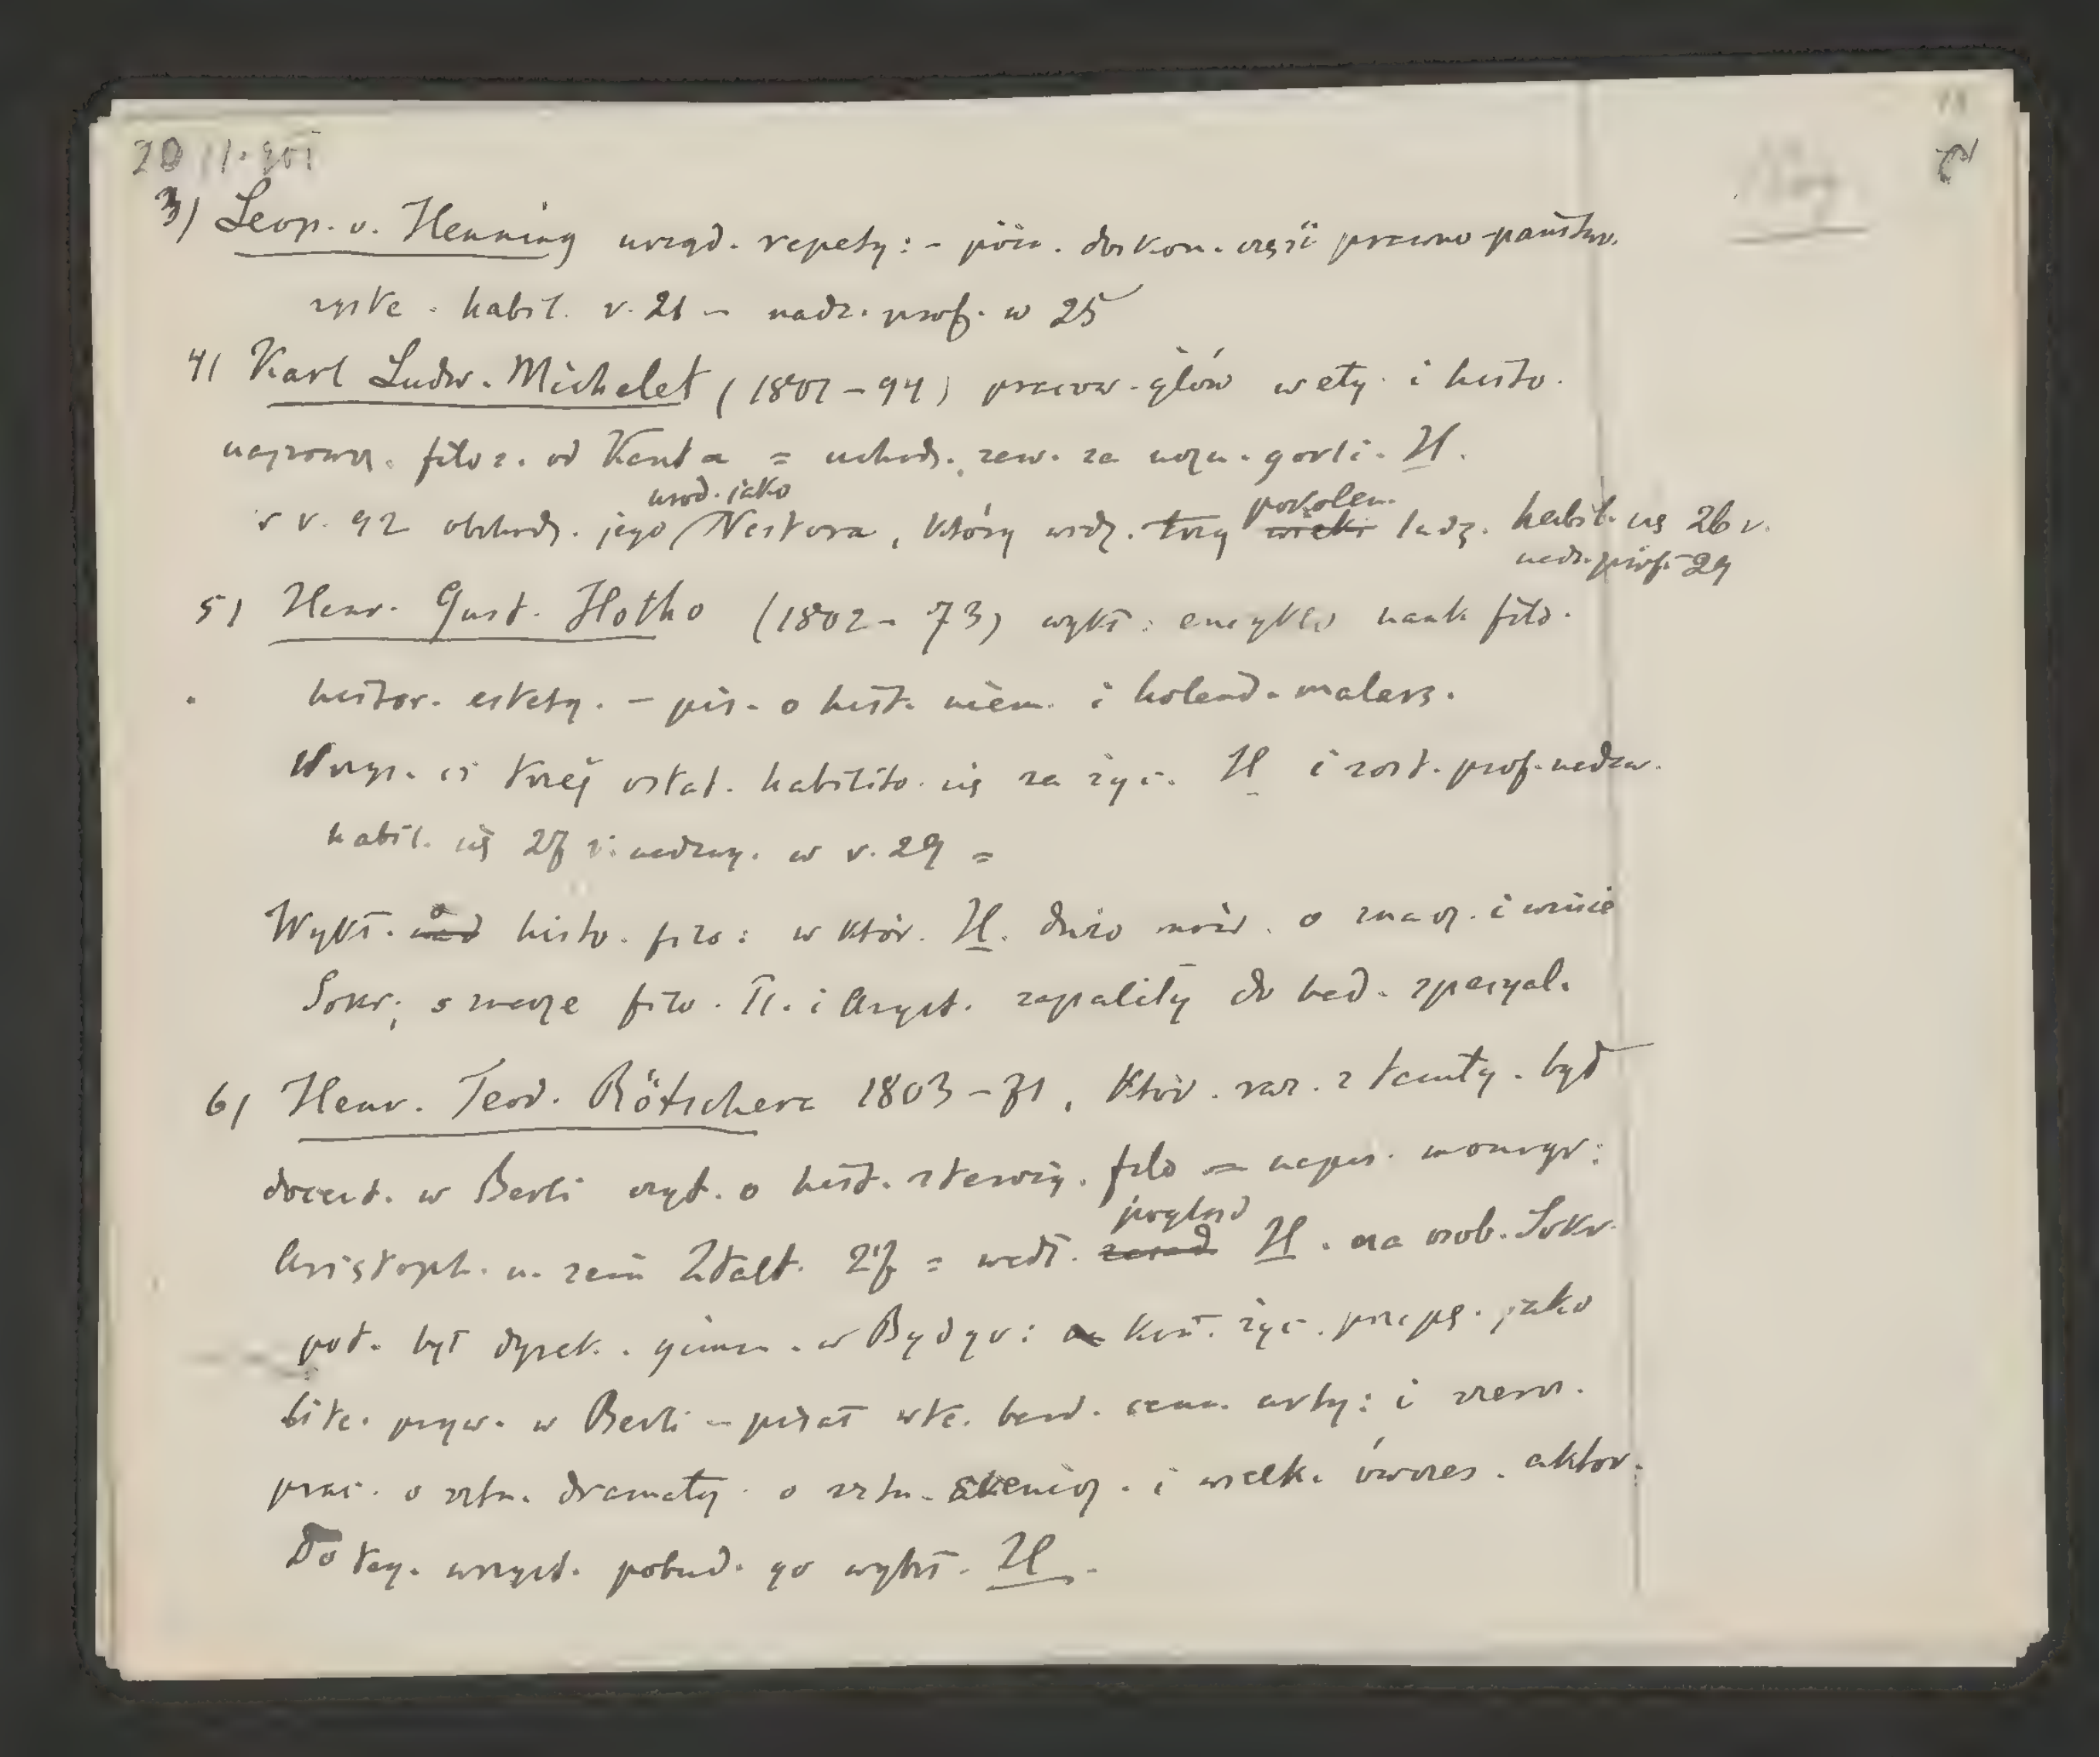 20 II. 901
3) Leop. v. Henning urzęd. repety: - póź. doskon. część prawno-państw.
habil. r. 21 - nadz. prof. w 25
4) Karl Ludw. Michelet (1801-94) pracow. głów w ety. i histo.
filoz. od Kanta = uchodz. zew. za gorli. H.
w r. 92 obchodz. jego urod. jako Nestora, który widz. trzy pokolen. ludz. habil. się 26 r.
nadz. prof. 29
5) Henr. Gust. Hotho (1802-73) wykł: encyklo nauk filo.
histor. estety. - pis. o hist. niem. i holend. malars.
Wszys. ci trzej ostat. habilito. się za życ. H i zost. prof. nadzw.
habil. się 27 i nadzwy. w r. 29 =
Wykł. o histo. filo: w któr. H. dużo mów. o znacz. i
Sokr; filo. Pl. i Aryst. zapality do bad. specyal.
6) Henr. Teod. Rötschera 1803-71, któr. raz. z tamty. był
docent. w Berli czyt. o hist. staroży. filo = napis. monogr:
Aristoph. u. sein Zitalt. 27 = wedł. pogląd H. na osob. Sokr.
pot. był dyrek. gimn. w Bydgo: kon. życ. przepę. jako
lite. pryw. w Berli - pisał wie. bard. cenn. arty: i
prac. o sztu. dramaty. o sztu. scenicz. i wielk. ówczes. aktor.
Do teg. wszyst. pobud. go wykł. H.